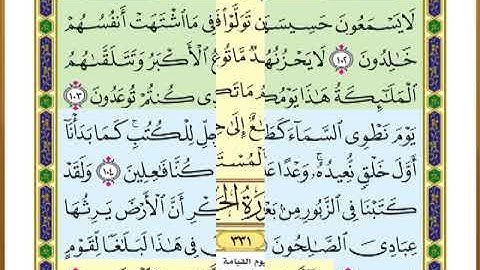 لَا يَسْمَعُونَ حَسِيسَ تَوَلَّوْا۟ فِي مَا ٱشْتَهَتْ أَنفُسُهُمْ
خَٰلِدُونَ ١٠٢ لَا يَحْزُنُهُ ٱلْأَكْبَرُ وَتَتَلَقَّىٰهُمُ
ٱلْمَلَٰٓئِكَةُ هَٰذَا يَوْمُكُمُ كُنتُمْ تُوعَدُونَ ١٠٣
يَوْمَ نَطْوِي ٱلسَّمَآءَ إِلَىٰ لِلْكُتُبِ كَمَا بَدَأْنَآ
أَوَّلَ خَلْقٍ نُّعِيدُهُۥ وَعْدًا كُنَّا فَٰعِلِينَ ١٠٤ وَلَقَدْ
كَتَبْنَا فِي ٱلزَّبُورِ مِنۢ أَنَّ ٱلْأَرْضَ يَرِثُهَا
عِبَادِيَ ٱلصَّٰلِحُونَ ٣٣١ فِي هَٰذَا لَبَلَٰغًا لِّقَوْمٍ
يوم القيامة